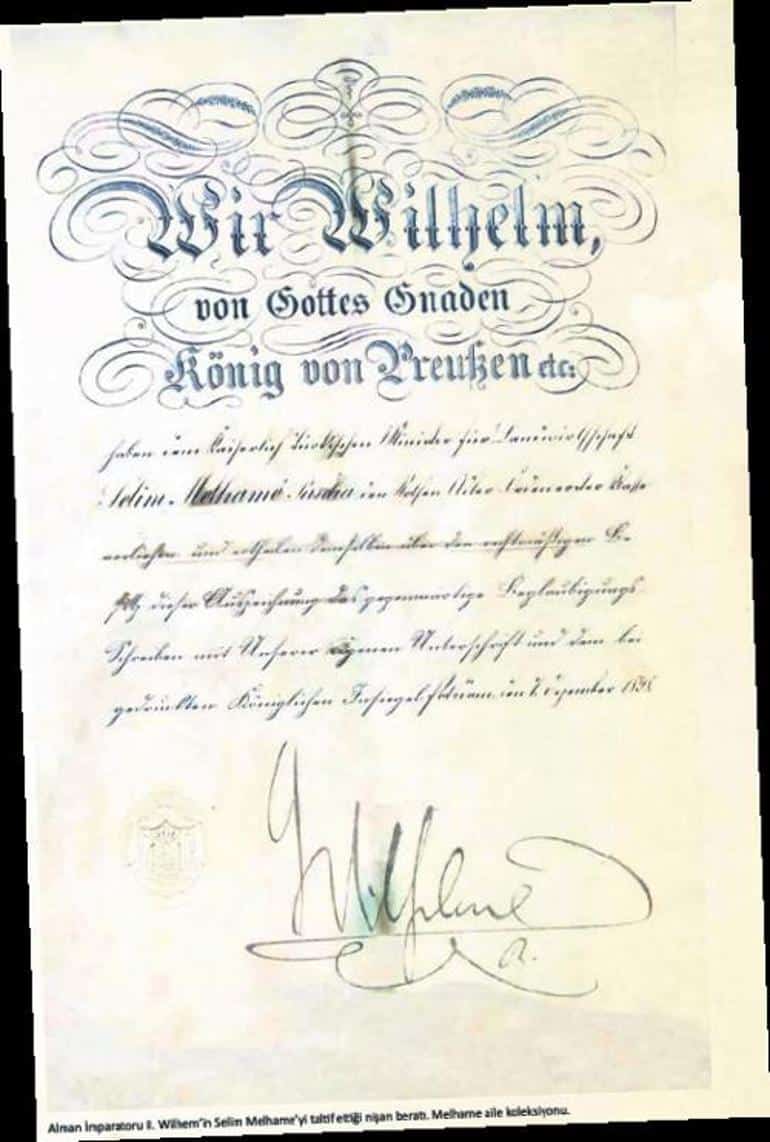 Wir Wilhelm,
von Gottes Gnaden
König von Preußen etc:
haben dem Kaiserlich Türkischen Minister für Landwirthschaft
Selim Melhamé Pascha den Rothen Adler-Orden erster Klasse
verliehen und ertheilen demselben über den rechtmäßigen Be-
sitz dieser Auszeichnung das gegenwärtige Beglaubigungs-
Schreiben mit Unserer eigenen Unterschrift und dem bei-
gedruckten Königlichen Insiegel. den Dezember
Wilhelm
R.
Alman İmparatoru II. Wilhem'in Selim Melhame'yi taltif ettiği nişan beratı. Melhame aile koleksiyonu.